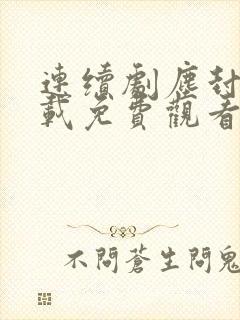 連續劇塵封
載免費觀看
不問蒼生問鬼